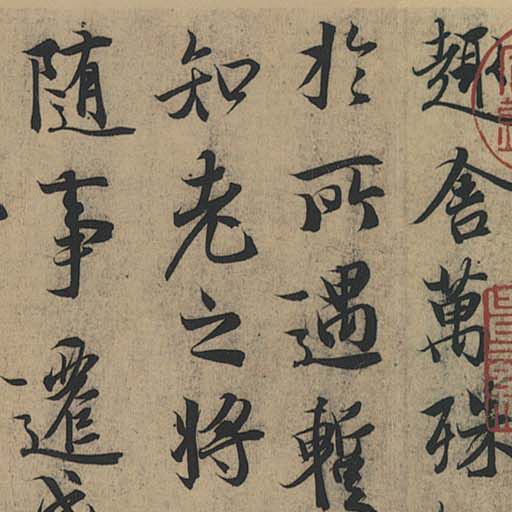 趣舍萬殊
於所遇暫
知老之將
隨事遷感